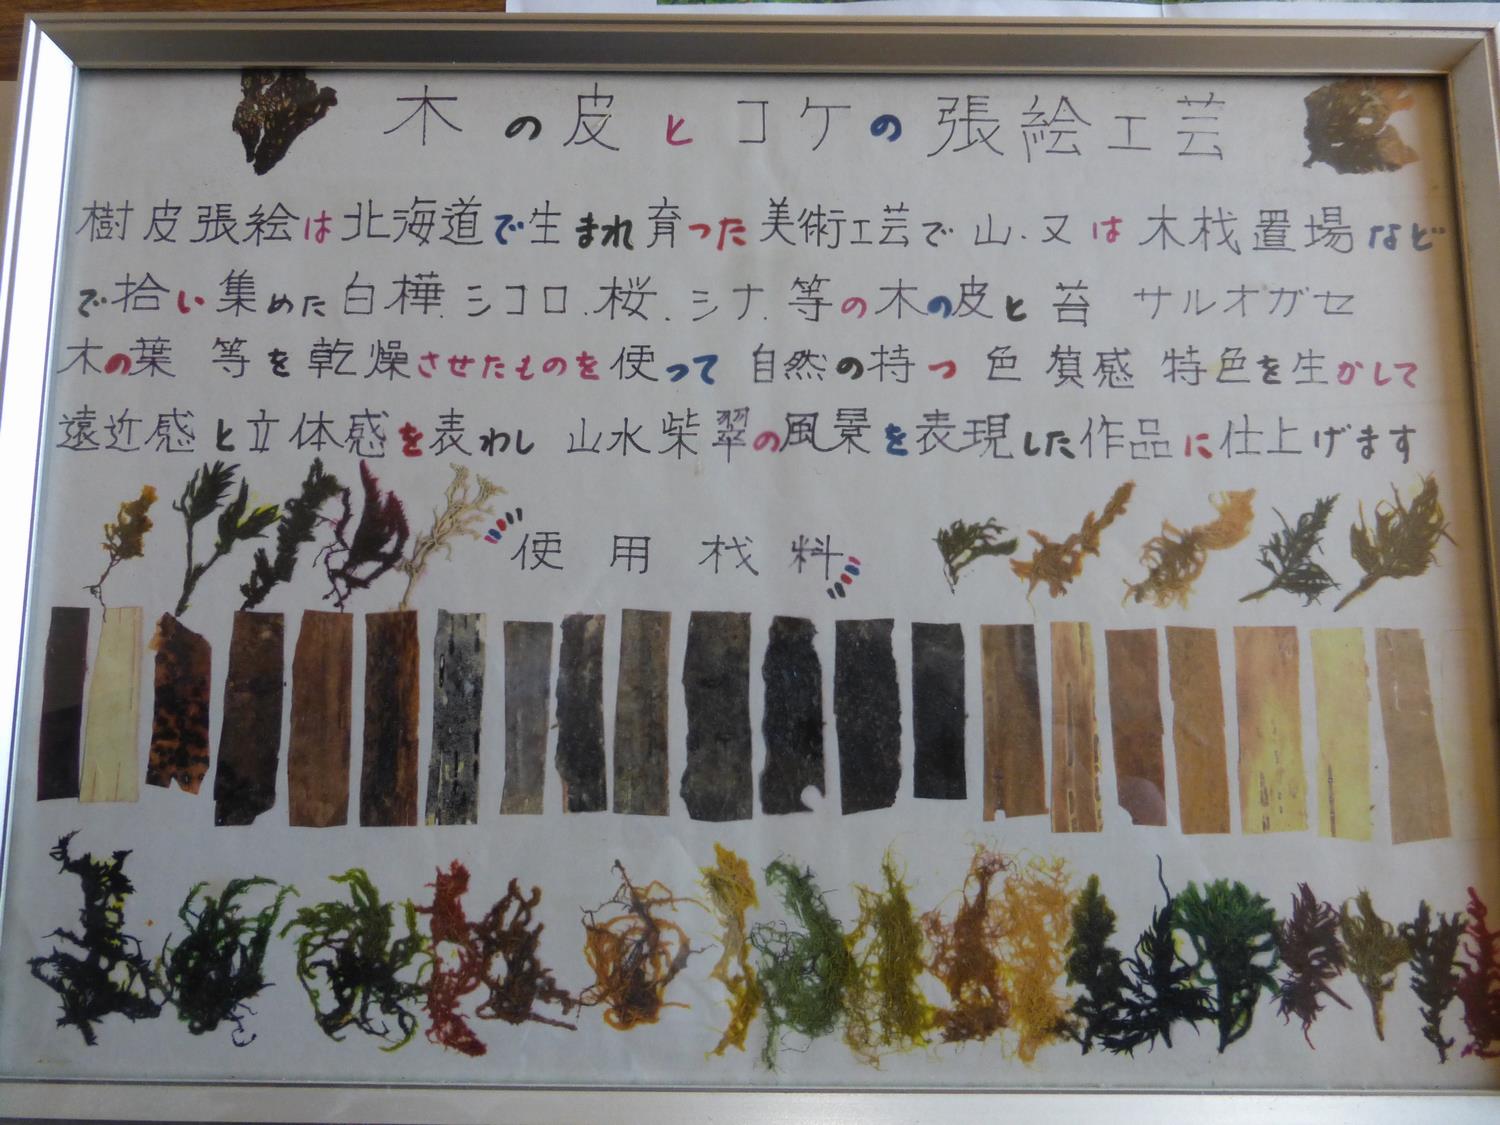 木の皮とコケの張絵工芸
樹皮張絵は北海道で生まれ育った美術工芸で山.又は木材置場など
で拾い集めた白樺.シコロ.桜.シナ.等の木の皮と苔 サルオガセ
木の葉 等を乾燥させたものを使って 自然の持つ 色 質感 特色を生かして
遠近感と立体感を表わし 山水柴翠の風景を表現した作品に仕上げます
使用材料